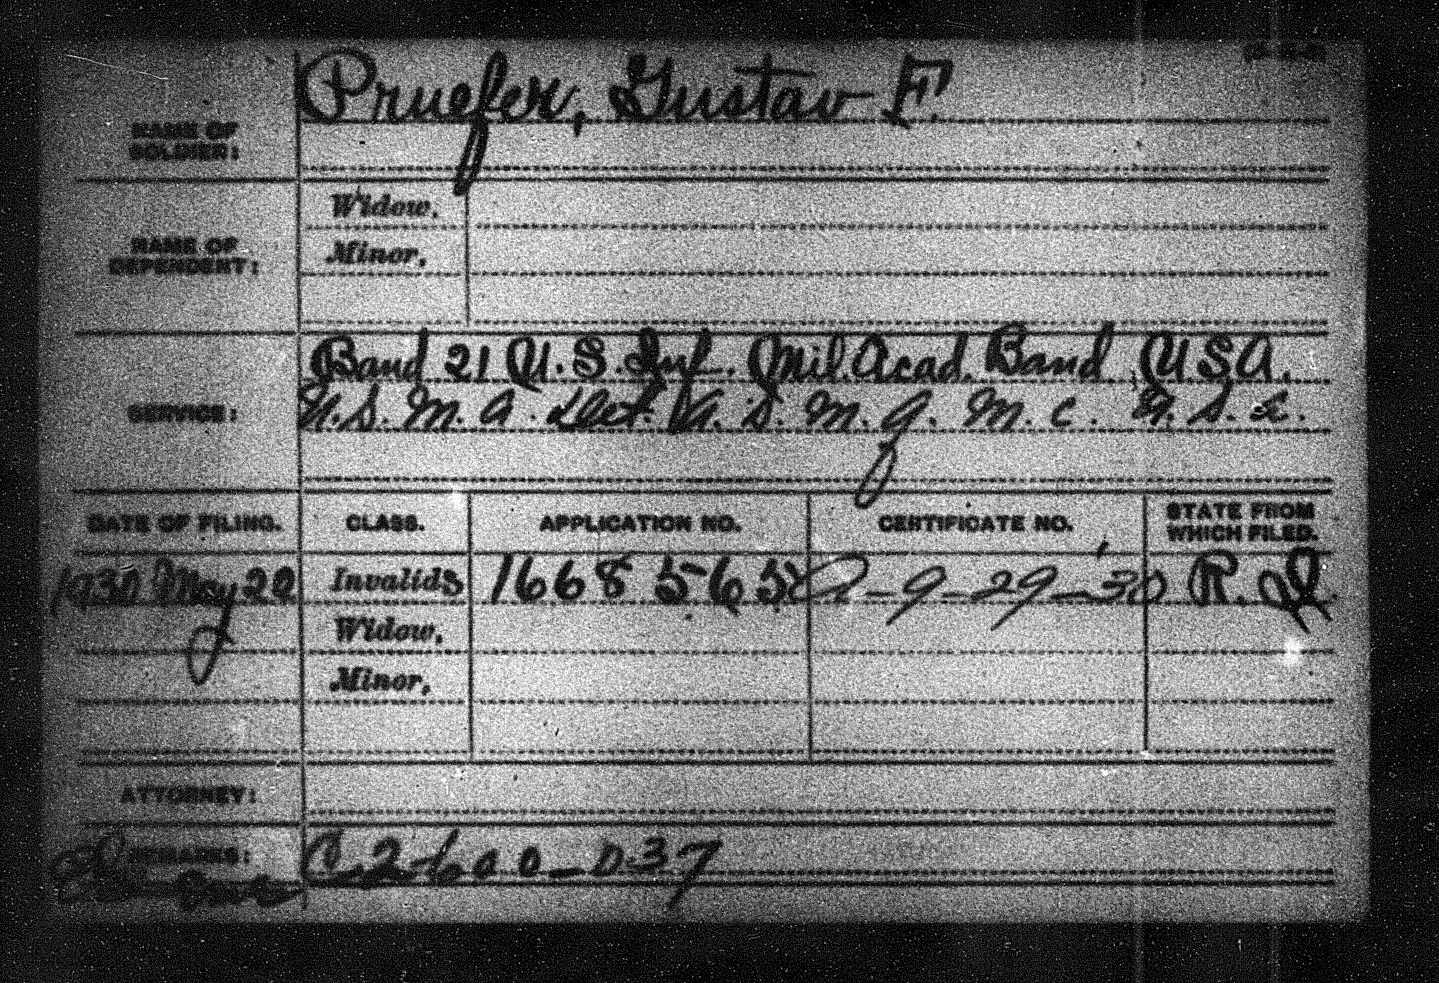 Pruefer, Gustav F.
NAME OF
SOLDIER:
Widow.
NAME OF
DEPENDENT:
Minor.
Band 21 U.S. Inf. Mil. Acad. Band U S A.
SERVICE:
U.S. M. A. Det. U.S. M. A. M. C. U. S. A.
DATE OF FILING. CLASS. APPLICATION NO. CERTIFICATE NO. STATE FROM
WHICH FILED.
1930 May 20 Invalid, 1668565 A-9-29-'30 R. I.
Widow,
Minor,
ATTORNEY:
REMARKS: C 2-600-037